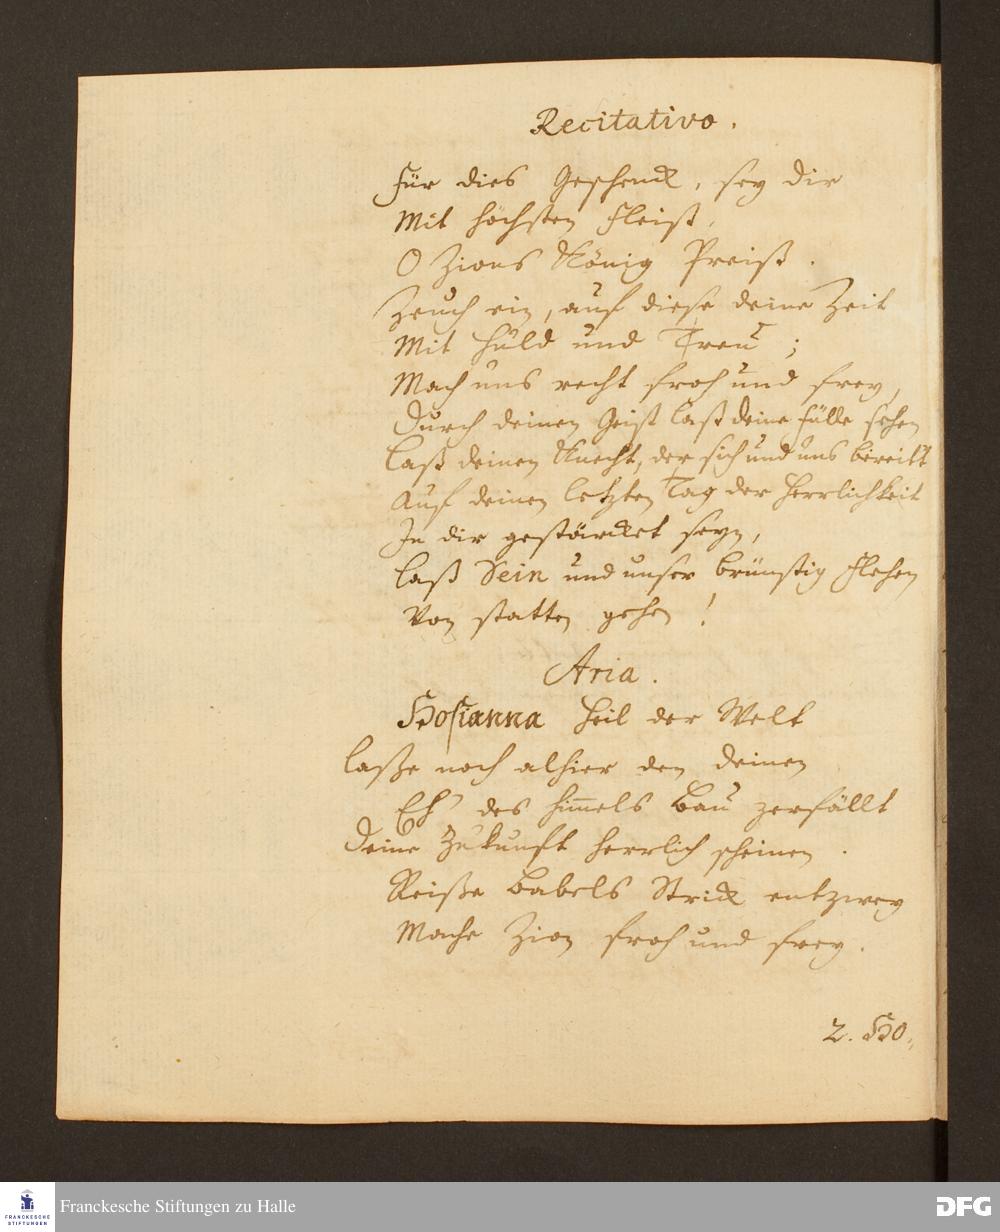 Recitativo.
Für dies Geschenck, sey dir
Mit höchsten Fleiß,
O Zions König Preiß.
Zeuch ein, auf diese deine Zeit
Mit Huld und Treu;
Mach uns recht froh und frey,
Durch deinen Geist laß deine Fülle sehen
Laß deinen Knecht, der sich und uns bereitt
Auf deinen letzten Tag der Herrlichkeit
In dir gestärcket seyn,
laß Sein und unser brünstig Flehen
Von statten gehen!
Aria.
Hosianna Heil der Welt
laße noch alhier den deinen
Eh' des Him̅els Bau zerfällt
Deine Zukunft herrlich scheinen.
Reiße Babels Strick entzwey
Mache Zion froh und frey.
2. Ho,,
FRANCKESCHE STIFTUNGEN
Franckesche Stiftungen zu Halle
DFG